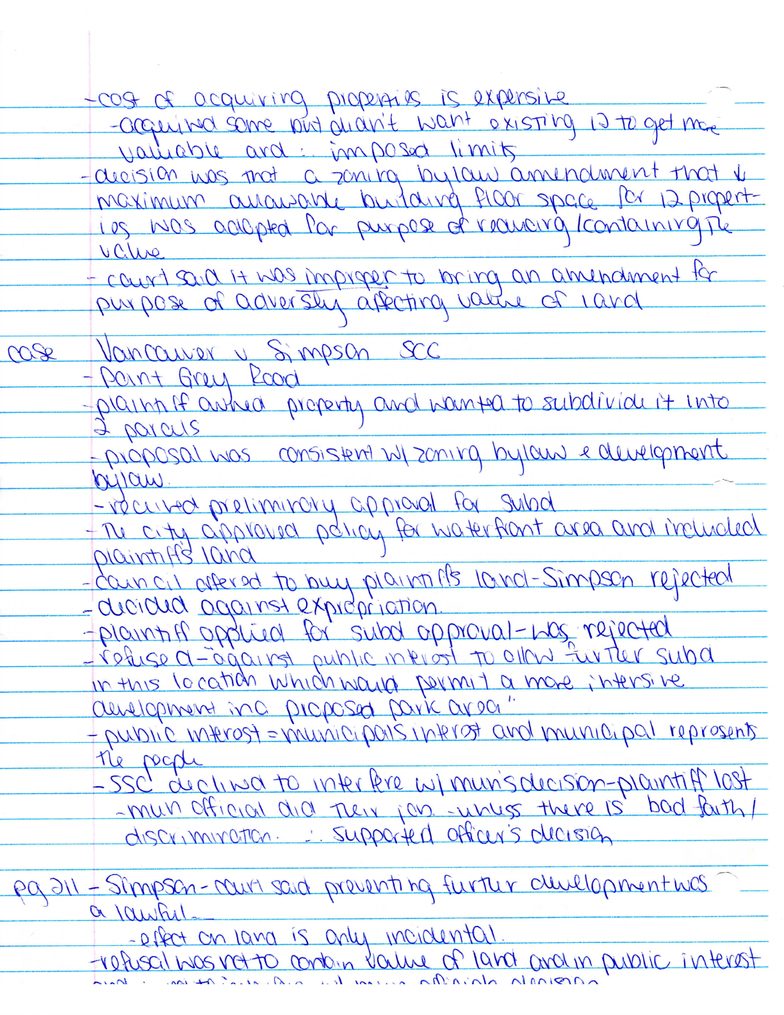 -cost of acquiring properties is expensive
-acquired some but didn't want existing 12 to get more
valuable and ∴ imposed limits
-decision was that a zoning bylaw amendment that ↓
maximum allowable building floor space for 12 propert-
ies was adopted for purpose of reducing/containing the
value
- court said it was improper to bring an amendment for
purpose of adversly affecting value of land
case Vancouver v Simpson SCC
- Point Grey Road
-plaintiff owned property and wanted to subdivide it into
2 parcels
-proposal was consistent w/ zoning bylaw & development
bylaw.
-received preliminary approval for subd
-The city approved policy for waterfront area and included
plaintiff's land
-council offered to buy plaintiff's land-Simpson rejected
-decided against expropriation.
-plaintiff applied for subd approval-was rejected
-refused-"against public interest to allow further subd
in this location which would permit a more intensive
development in a proposed park area"
-public interest = municipals interest and municipal represents
the people
-SSC declined to interfere w/ mun's decision-plaintiff lost
-mun official did their job -unless there is bad faith/
discrimination. ∴ supported officer's decision
pg 211 - Simpson-court said preventing further development was
a lawful
-effect on land is only incidental.
-refusal was not to contain value of land and in public interest